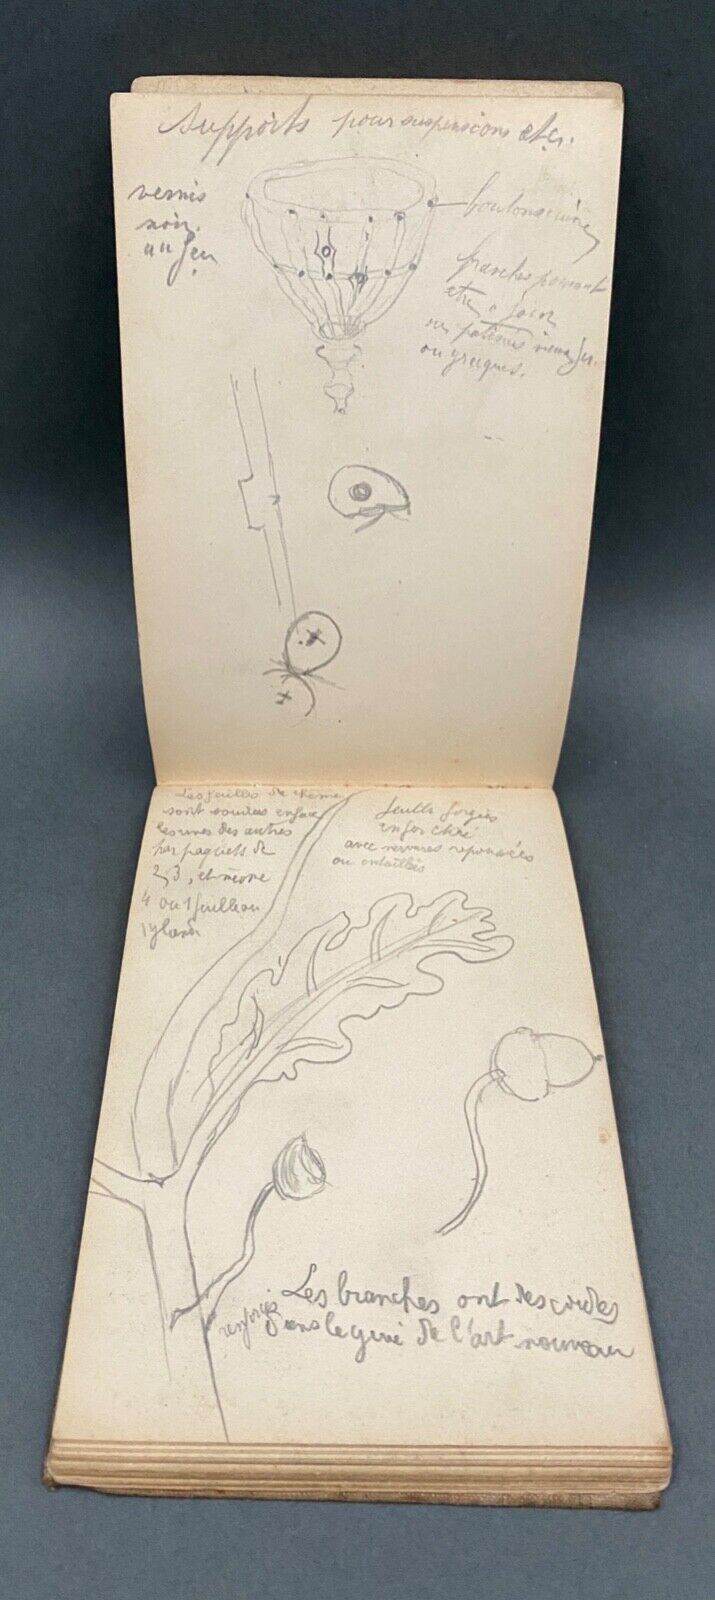 Supports pour suspensions etc.
vernis
noir
au feu
boulons
branches pouvant
etre a jour
ou patinés vieux fer
ou grecques.
Les feuilles de chêne
sont soudées
les unes des autres
par paquets de
2, 3, et même
4 ou 1 feuille ou
1 gland
feuilles forgées
en fer
avec nervures repoussées
ou entaillées
Les branches ont des coudes
dans le de l'art nouveau